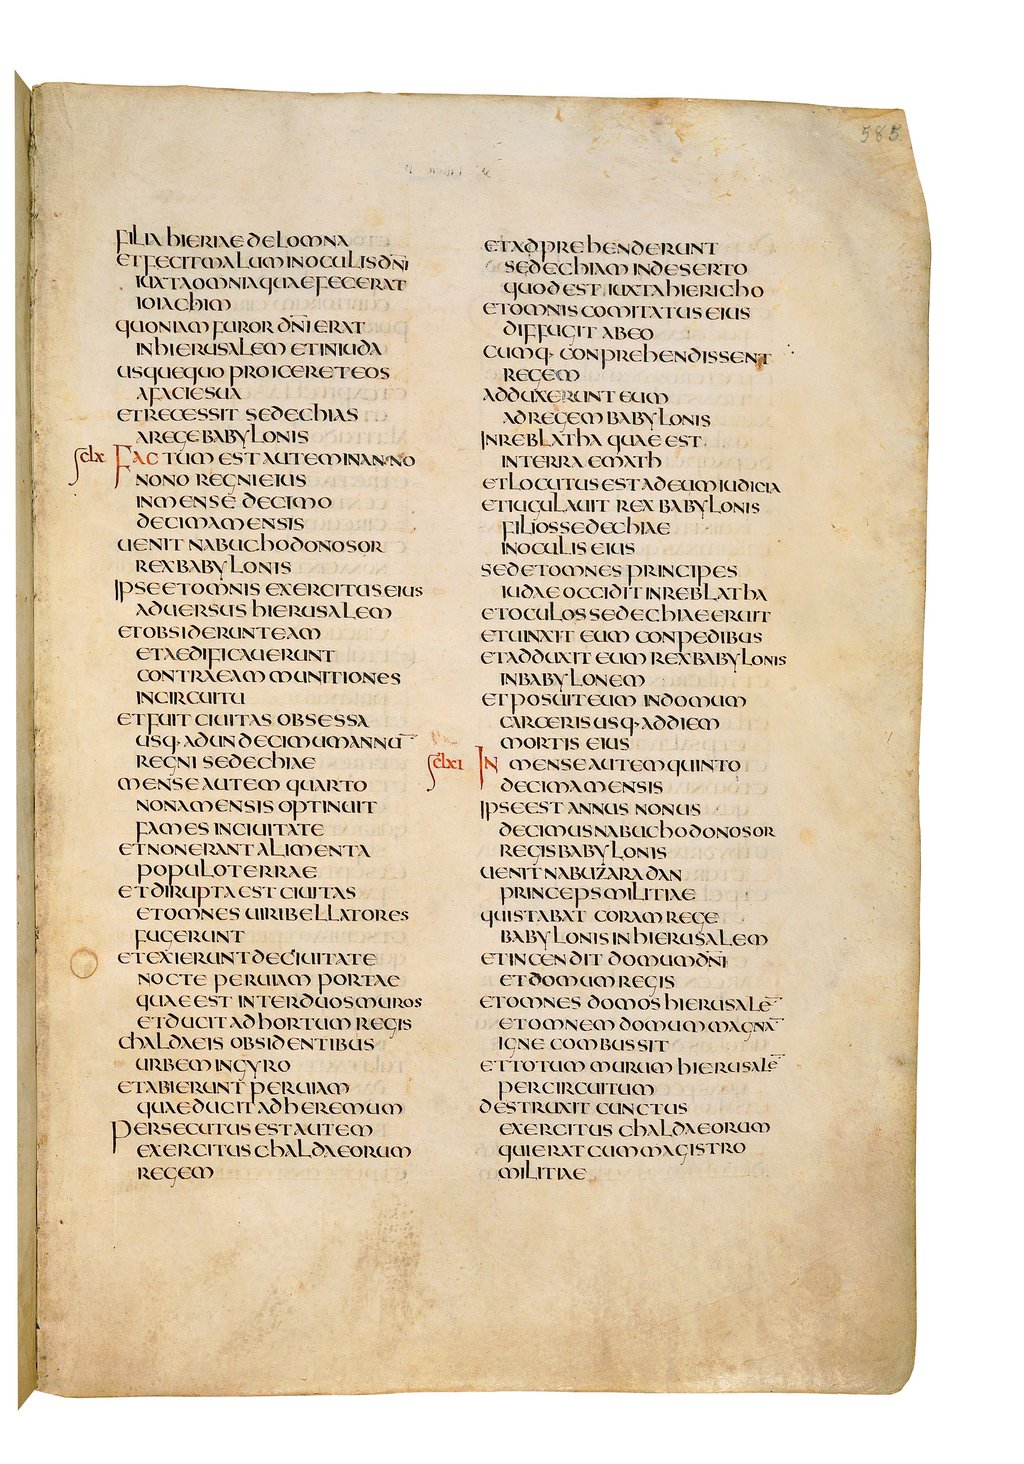 585
FILIA HIERIAE DE LOMNA
ET FECIT MALUM IN OCULIS DNI
IUXTA OMNIA QUAE FECERAT
IOIACHIM
QUONIAM FUROR DNI ERAT
IN HIERUSALEM ET IN IUDA
USQUEQUO PROICERET EOS
A FACIE SUA
ET RECESSIT SEDECHIAS
A REGE BABYLONIS
SCLX FACTUM EST AUTEM IN ANNO
NONO REGNI EIUS
IN MENSE DECIMO
DECIMA MENSIS
UENIT NABUCHODONOSOR
REX BABYLONIS
IPSE ET OMNIS EXERCITUS EIUS
ADUERSUS HIERUSALEM
ET OBSIDERUNT EAM
ET AEDIFICAUERUNT
CONTRA EAM MUNITIONES
IN CIRCUITU
ET FUIT CIUITAS OBSESSA
USQ· AD UNDECIMUM ANNU¯
REGNI SEDECHIAE
MENSE AUTEM QUARTO
NONA MENSIS OPTINUIT
FAMES IN CIUITATE
ET NON ERANT ALIMENTA
POPULO TERRAE
ET DIRUPTA EST CIUITAS
ET OMNES UIRI BELLATORES
FUGERUNT
ET EXIERUNT DE CIUITATE
NOCTE PER UIAM PORTAE
QUAE EST INTER DUOS MUROS
ET DUCIT AD HORTUM REGIS
CHALDAEIS OBSIDENTIBUS
URBEM IN GYRO
ET ABIERUNT PER UIAM
QUAE DUCIT AD HEREMUM
PERSECUTUS EST AUTEM
EXERCITUS CHALDAEORUM
REGEM
ET ADPREHENDERUNT
SEDECHIAM IN DESERTO
QUOD EST IUXTA HIERICHO
ET OMNIS COMITATUS EIUS
DIFFUGIT AB EO
CUMQ· CONPREHENDISSENT
REGEM
ADDUXERUNT EUM
AD REGEM BABYLONIS
IN REBLATHA QUAE EST
IN TERRA EMATH
ET LOCUTUS EST AD EUM IUDICIA
ET IUGULAUIT REX BABYLONIS
FILIOS SEDECHIAE
IN OCULIS EIUS
SED ET OMNES PRINCIPES
IUDAE OCCIDIT IN REBLATHA
ET OCULOS SEDECHIAE ERUIT
ET UINXIT EUM CONPEDIBUS
ET ADDUXIT EUM REX BABYLONIS
IN BABYLONEM
ET POSUIT EUM IN DOMUM
CARCERIS USQ· AD DIEM
MORTIS EIUS
SCLXI IN MENSE AUTEM QUINTO
DECIMA MENSIS
IPSE EST ANNUS NONUS
DECIMUS NABUCHODONOSOR
REGIS BABYLONIS
UENIT NABUZARADAN
PRINCEPS MILITIAE
QUI STABAT CORAM REGE
BABYLONIS IN HIERUSALEM
ET INCENDIT DOMUM DNI
ET DOMUM REGIS
ET OMNES DOMOS HIERUSALE¯
ET OMNEM DOMUM MAGNA¯
IGNE COMBUSSIT
ET TOTUM MURUM HIERUSALE¯
PER CIRCUITUM
DESTRUXIT CUNCTUS
EXERCITUS CHALDAEORUM
QUI ERAT CUM MAGISTRO
MILITIAE